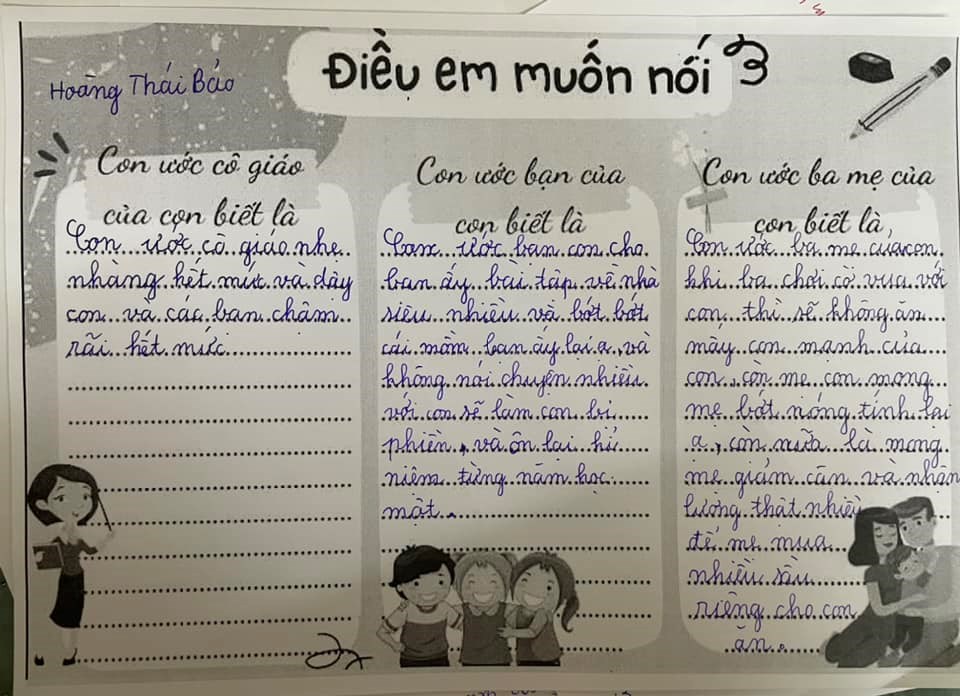 Hoàng Thái Bảo
Điều em muốn nói
Con ước cô giáo
của con biết là
Con ước cô giáo nhẹ
nhàng hết mức và dảy
con và các bạn chậm
rãi hết mức
Con ước bạn của
con biết là
Con ước bạn con cho
bạn ấy bài tập về nhà
siêu nhiều và bớt bớt
cái mồm bạn ấy lại ạ, và
không nói chuyện nhiều
với con sẽ làm con bị
phiền, và ôn lại hỉ
niệm từng năm học
một.
Con ước ba mẹ của
con biết là
Con ước ba mẹ của con
khi ba chơi cờ vua với
con thì sẽ không ăn
mấy con mạnh của
con, còn mẹ con mong
mẹ bớt nóng tính lại
ạ, còn nữa là mong
mẹ giảm cân và nhận
lượng thật nhiều
để mẹ mua
nhiều sầu
riêng cho con
ăn.